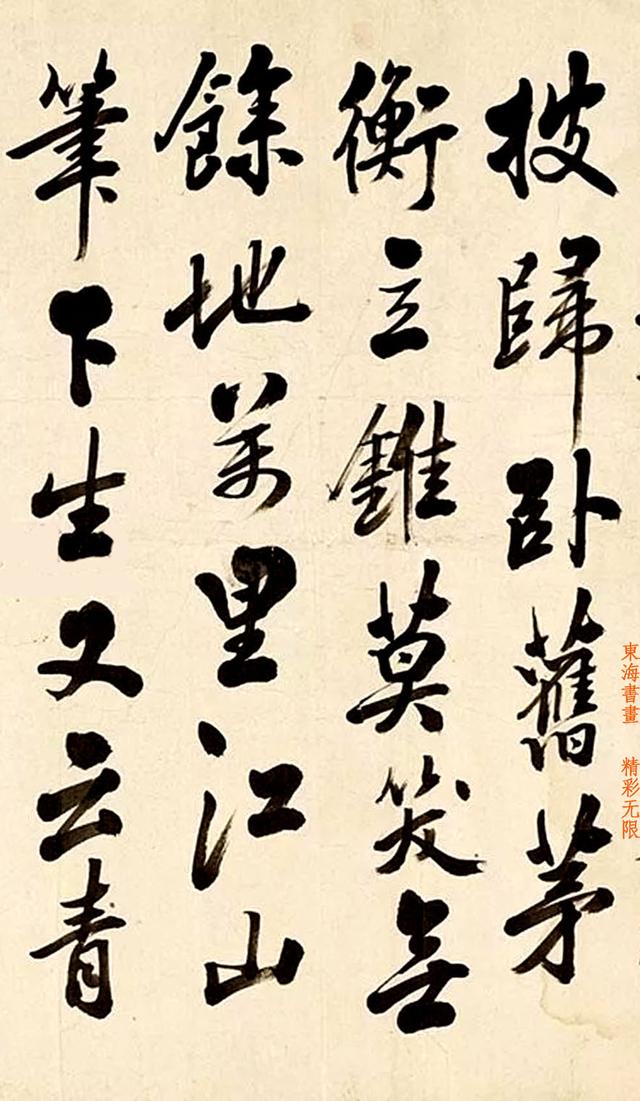 披歸卧舊茅
衡立錐莫笑無
餘地萬里江山
筆下生又云青
東海書畫 精彩无限